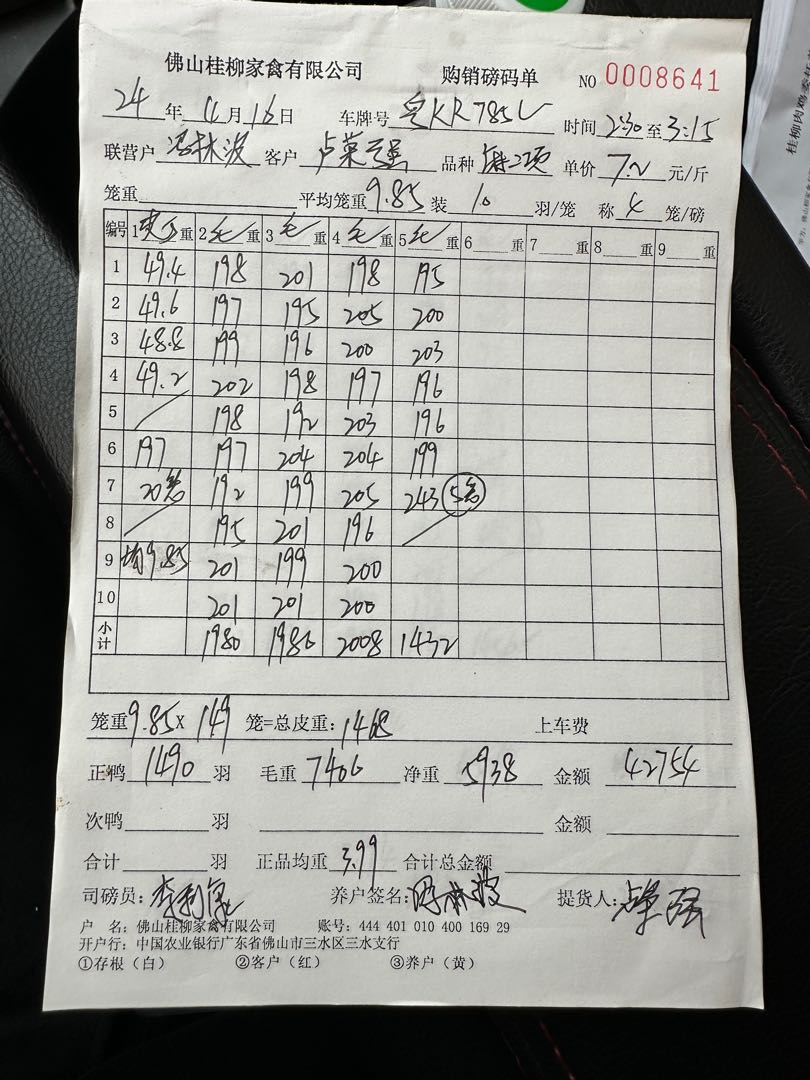 佛山桂柳家禽有限公司 购销磅码单 NO 0008641
24年4月16日 车牌号 粤KR785L 时间 2:30至3:15
联营户 冯林波 客户 卢荣强 品种 单价 7.2 元/斤
笼重 平均笼重 9.85 装 10 羽/笼 称 4 笼/磅
编号 1 皮重 2 毛重 3 毛重 4 毛重 5 毛重 6 重 7 重 8 重 9 重
1 49.4 198 201 198 195
2 49.6 197 195 205 200
3 48.8 199 196 200 203
4 49.2 202 198 197 196
5 198 192 203 196
6 197 197 204 204 199
7 20笼 192 199 205 243 5笼
8 195 201 196
9 均9.85 201 199 200
10 201 201 200
小计 1980 1986 2008 1432
笼重 9.85 x 149 笼=总皮重: 1468 上车费
正鸭 1490 羽 毛重 7406 净重 5938 金额 42754
次鸭 羽 金额
合计 羽 正品均重 3.99 合计总金额
司磅员: 养户签名: 冯林波 提货人: 卢荣强
户 名: 佛山桂柳家禽有限公司 账号: 444 401 010 400 169 29
开户行: 中国农业银行广东省佛山市三水区三水支行
①存根（白） ②客户（红） ③养户（黄）